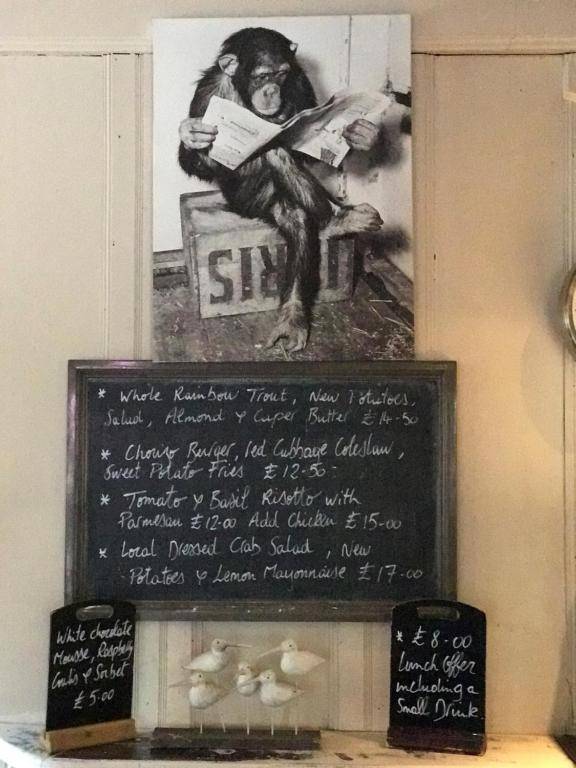 SIRIU
* Whole Rainbow Trout, New Potatoes,
Salad, Almond & Caper Butter £14-50
* Chorizo Burger, red Cabbage Coleslaw,
Sweet Potato Fries £12-50-
* Tomato & Basil Risotto with
Parmesan £12-00 Add Chicken £15-00
* Local Dressed Crab Salad, New
Potatoes & Lemon Mayonnaise £17-00
White chocolate
Mousse, Raspberry
Coulis & Sorbet
£5.00
* £8.00
Lunch Offer
including a
Small Drink